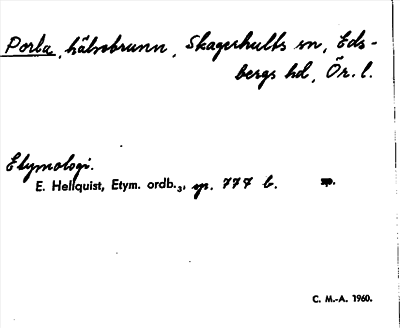 Porla, hälsobrunn, Skagerhults sn, Eds-
bergs hd, Ör. l.
Etymologi.
E. Hellquist, Etym. ordb.3, sp. 777 b.
C. M.-A. 1960.